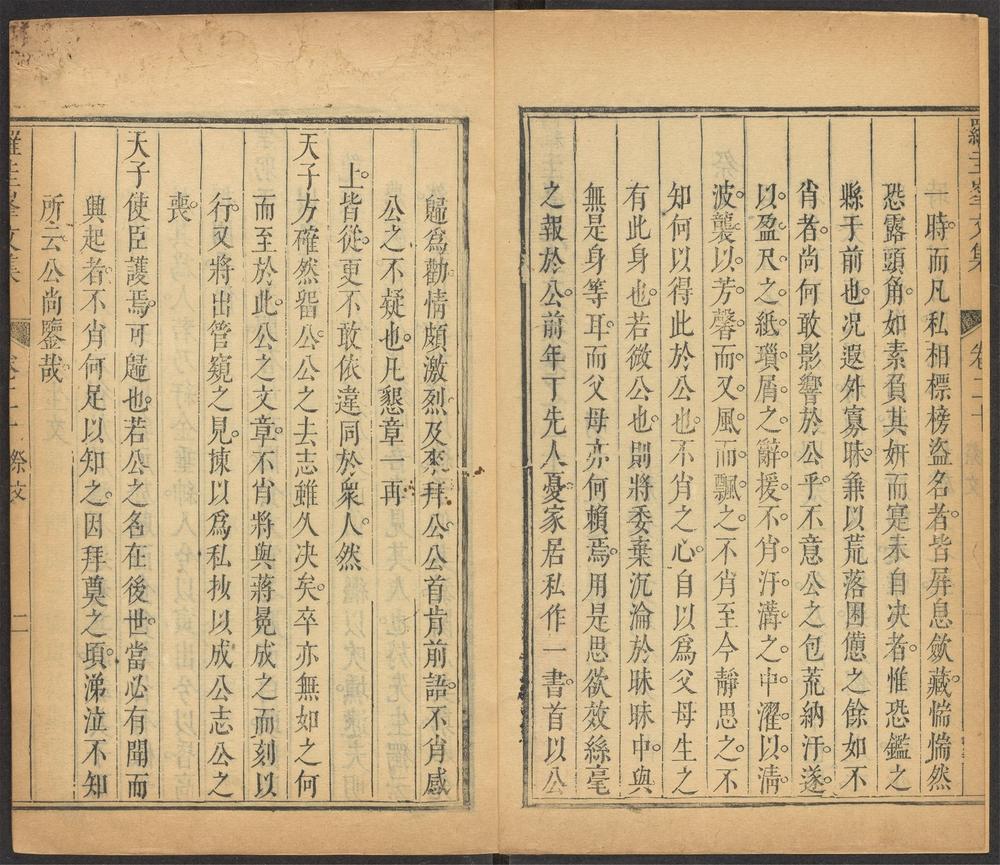 羅圭峯文集
卷二十
時而凡私相標榜盜名者皆屏息斂藏惴惴然
恐露頭角如素負其妍而寔未自决者惟恐鑑之
縣于前也况遐外寡昧兼以荒落困憊之餘如不
肖者尚何敢影響於公乎不意公之包荒納汙遂
以盈尺之紙瑣屑之辭援不肖汙溝之中濯以淸
波襲以芳馨而又風而飄之不肖至今靜思之不
知何以得此於公也不肖之心自以爲父母生之
有此身也若微公也則將委棄沉淪於昧昧中與
無是身等耳而父母亦何賴焉用是思欲效絲毫
之報於公前年丁先人憂家居私作一書首以公
歸爲勸情頗激烈及來拜公公首肯前語不肖感
公之不疑也凡懇章一再
上皆從更不敢依違同於衆人然
天子方確然留公公之去志雖久决矣卒亦無如之何
而至於此公之文章不肖將與蔣冕成之而刻以
行又將出管窺之見揀以爲私抄以成公志公之
喪
天子使臣護焉可歸也若公之名在後世當必有聞而
興起者不肖何足以知之因拜奠之頃涕泣不知
所云公尚鑒哉
羅圭峯文集
卷二十
祭文
二